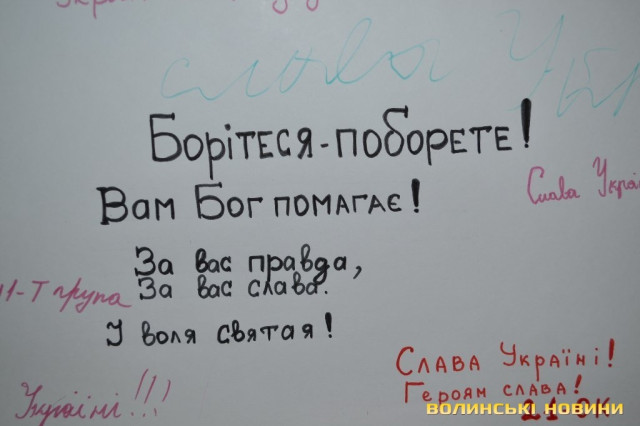 слава Ук
Борітеся-поборете!
Вам Бог помагає!
Слава Украї
За вас правда,
За вас слава.
11-Т група
І воля святая!
Слава Україні!
Героям слава!
Україні!!!
21-ОК
ВОЛИНСЬКІ НОВИНИ